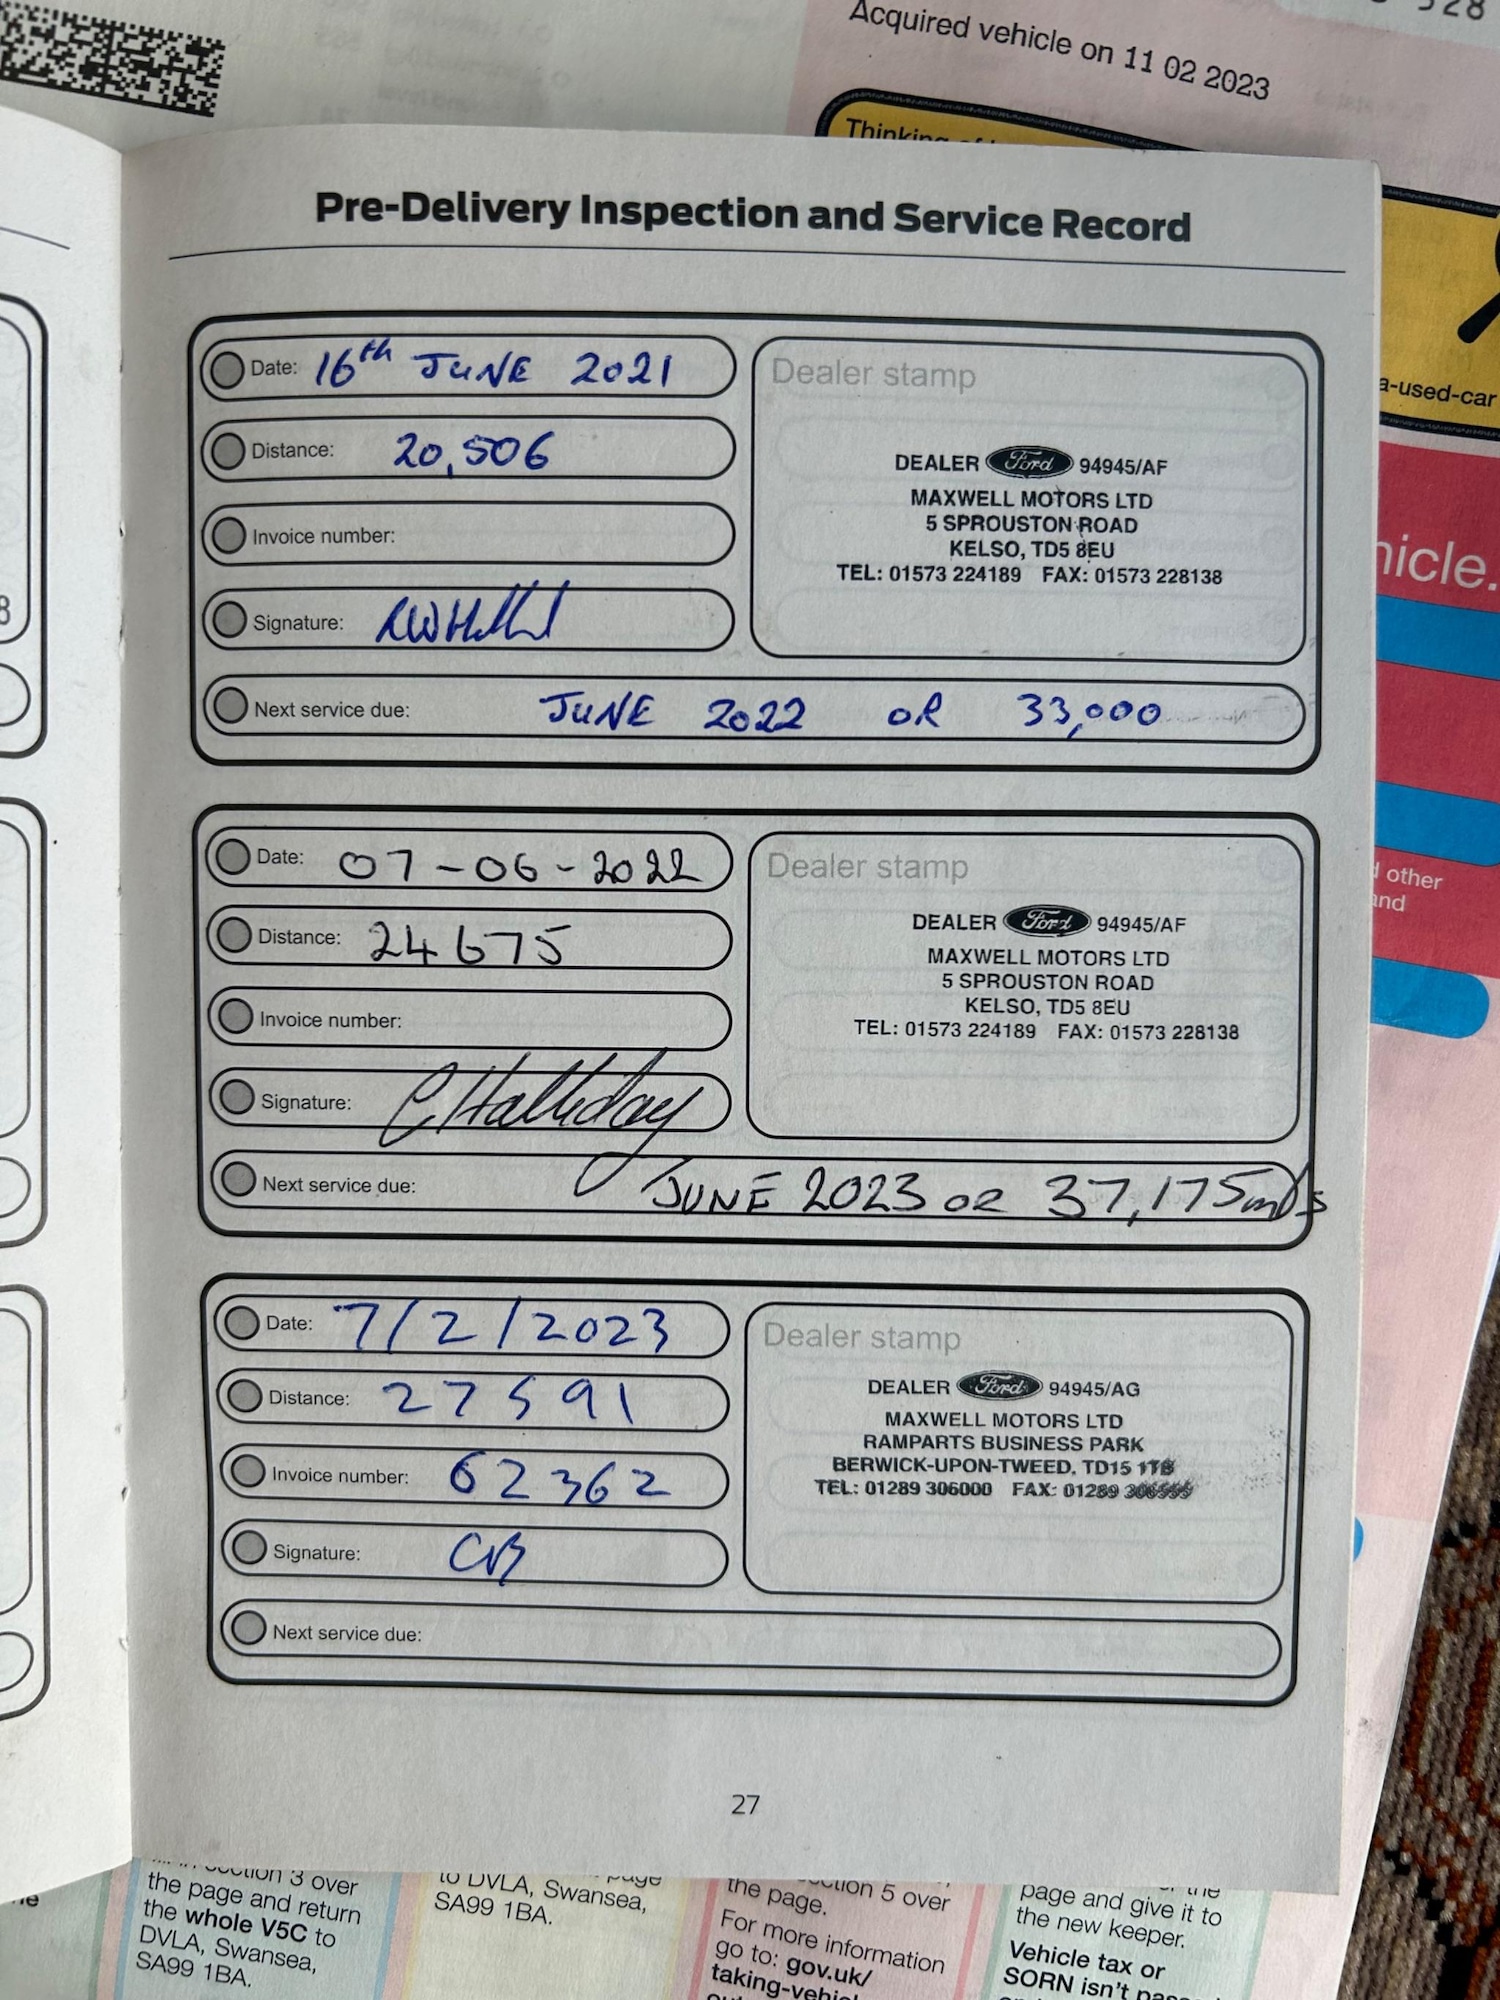 528
Acquired vehicle on 11 02 2023
Thinking of
a-used-car
nicle.
d other
and
8
Pre-Delivery Inspection and Service Record
Date: 16th JUNE 2021
Distance: 20,506
Invoice number:
Signature:
Next service due: JUNE 2022 OR 33,000
Dealer stamp
DEALER Ford 94945/AF
MAXWELL MOTORS LTD
5 SPROUSTON ROAD
KELSO, TD5 8EU
TEL: 01573 224189 FAX: 01573 228138
Date: 07-06-2022
Distance: 24675
Invoice number:
Signature: C Halliday
Next service due: JUNE 2023 OR 37,175 mls
Dealer stamp
DEALER Ford 94945/AF
MAXWELL MOTORS LTD
5 SPROUSTON ROAD
KELSO, TD5 8EU
TEL: 01573 224189 FAX: 01573 228138
Date: 7/2/2023
Distance: 27591
Invoice number: 62362
Signature: CB
Next service due:
Dealer stamp
DEALER Ford 94945/AG
MAXWELL MOTORS LTD
RAMPARTS BUSINESS PARK
BERWICK-UPON-TWEED, TD15 1TB
TEL: 01289 306000 FAX: 01289
27
section 3 over
the page and return
the whole V5C to
DVLA, Swansea,
SA99 1BA.
page
to DVLA, Swansea,
SA99 1BA.
section 5 over
the page.
For more information
go to: gov.uk/
taking-vehic
the
page and give it to
the new keeper.
Vehicle tax or
SORN isn't pas